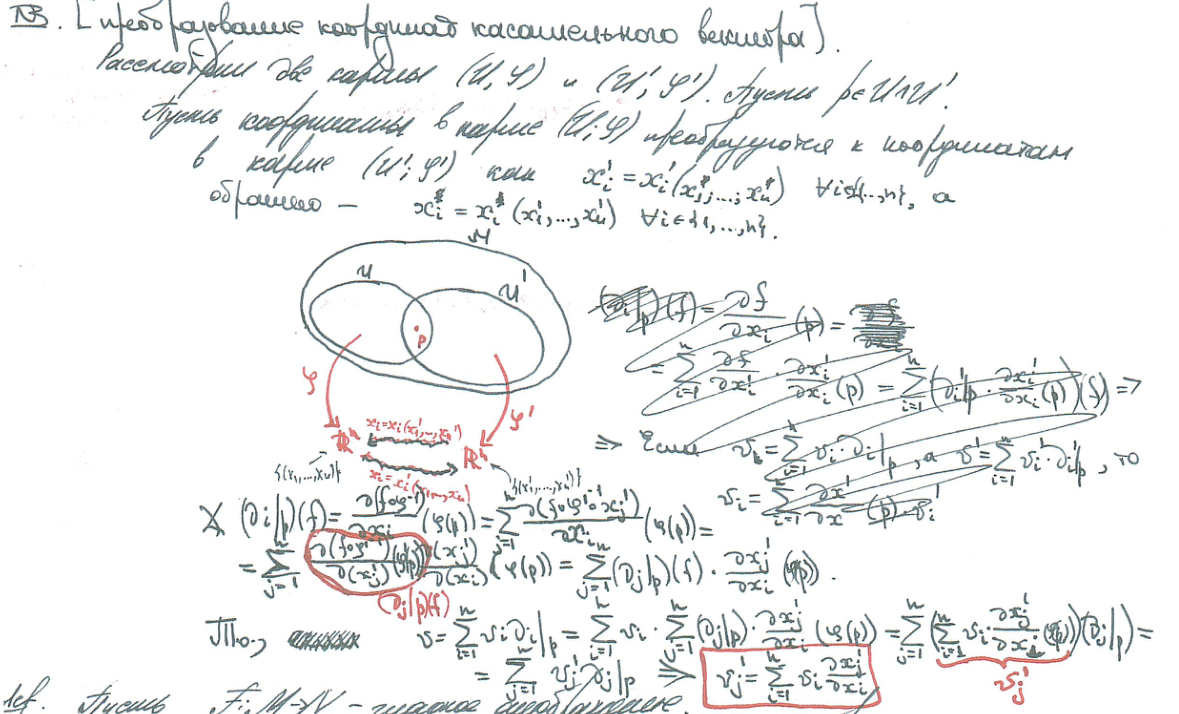 NB. [преобразование координат касательного вектора].
Рассмотрим две карты (U, φ) и (U', φ'). Пусть p∈U∩U'.
Пусть координаты в карте (U; φ) преобразуются к координатам
в карте (U'; φ') как x'_i = x'_i(x_1,...,x_n) ∀i∈{1,...,n}, а
обратно – x_i = x_i(x'_1,...,x'_n) ∀i∈{1,...,n}.
M
U
U'
p
φ
φ'
x_i=x_i(x'_1,...,x'_n)
ℝ^n
ℝ^n
x'_i=x'_i(x_1,...,x_n)
{(x_1,...,x_n)}
{(x'_1,...,x'_n)}
(∂_i|_p)(f) = ∂f/∂x_i (p) =
= Σ_{i=1}^n ∂f/∂x'_i · ∂x'_i/∂x_i (p) = Σ_{i=1}^n (∂'_i|_p · ∂x'_i/∂x_i (p))(f) ⇒
⇒ Если v = Σ_{i=1}^n v_i·∂_i|_p, а v' = Σ_{i=1}^n v'_i·∂'_i|_p, то
v_i = Σ_{i=1}^n ∂x'/∂x (p)·v'_i
(∂_i|_p)(f) = ∂(f∘φ^{-1})/∂x_i (φ(p)) = Σ_{j=1}^n ∂(f∘φ'^{-1}∘x'_j)/∂x_i (φ(p)) =
= Σ_{j=1}^n ∂(f∘φ'^{-1})/∂(x'_j) (φ'(p)) ∂(x'_j)/∂(x_i) (φ(p)) = Σ_{j=1}^n (∂_j|_p)(f) · ∂x'_j/∂x_i (φ(p)).
∂_j|_p(f)
Т.о., v = Σ_{i=1}^n v_i ∂_i|_p = Σ_{i=1}^n v_i · Σ_{j=1}^n (∂_j|_p) · ∂x'_j/∂x_i (φ(p)) = Σ_{j=1}^n (Σ_{i=1}^n v_i · ∂x'_j/∂x_i (φ(p)))(∂_j|_p) =
v'_j
= Σ_{j=1}^n v'_j ∂_j|_p ⇒ v'_j = Σ_{i=1}^n v_i ∂x'_j/∂x_i
def. Пусть F: M→N – гладкое отображение.